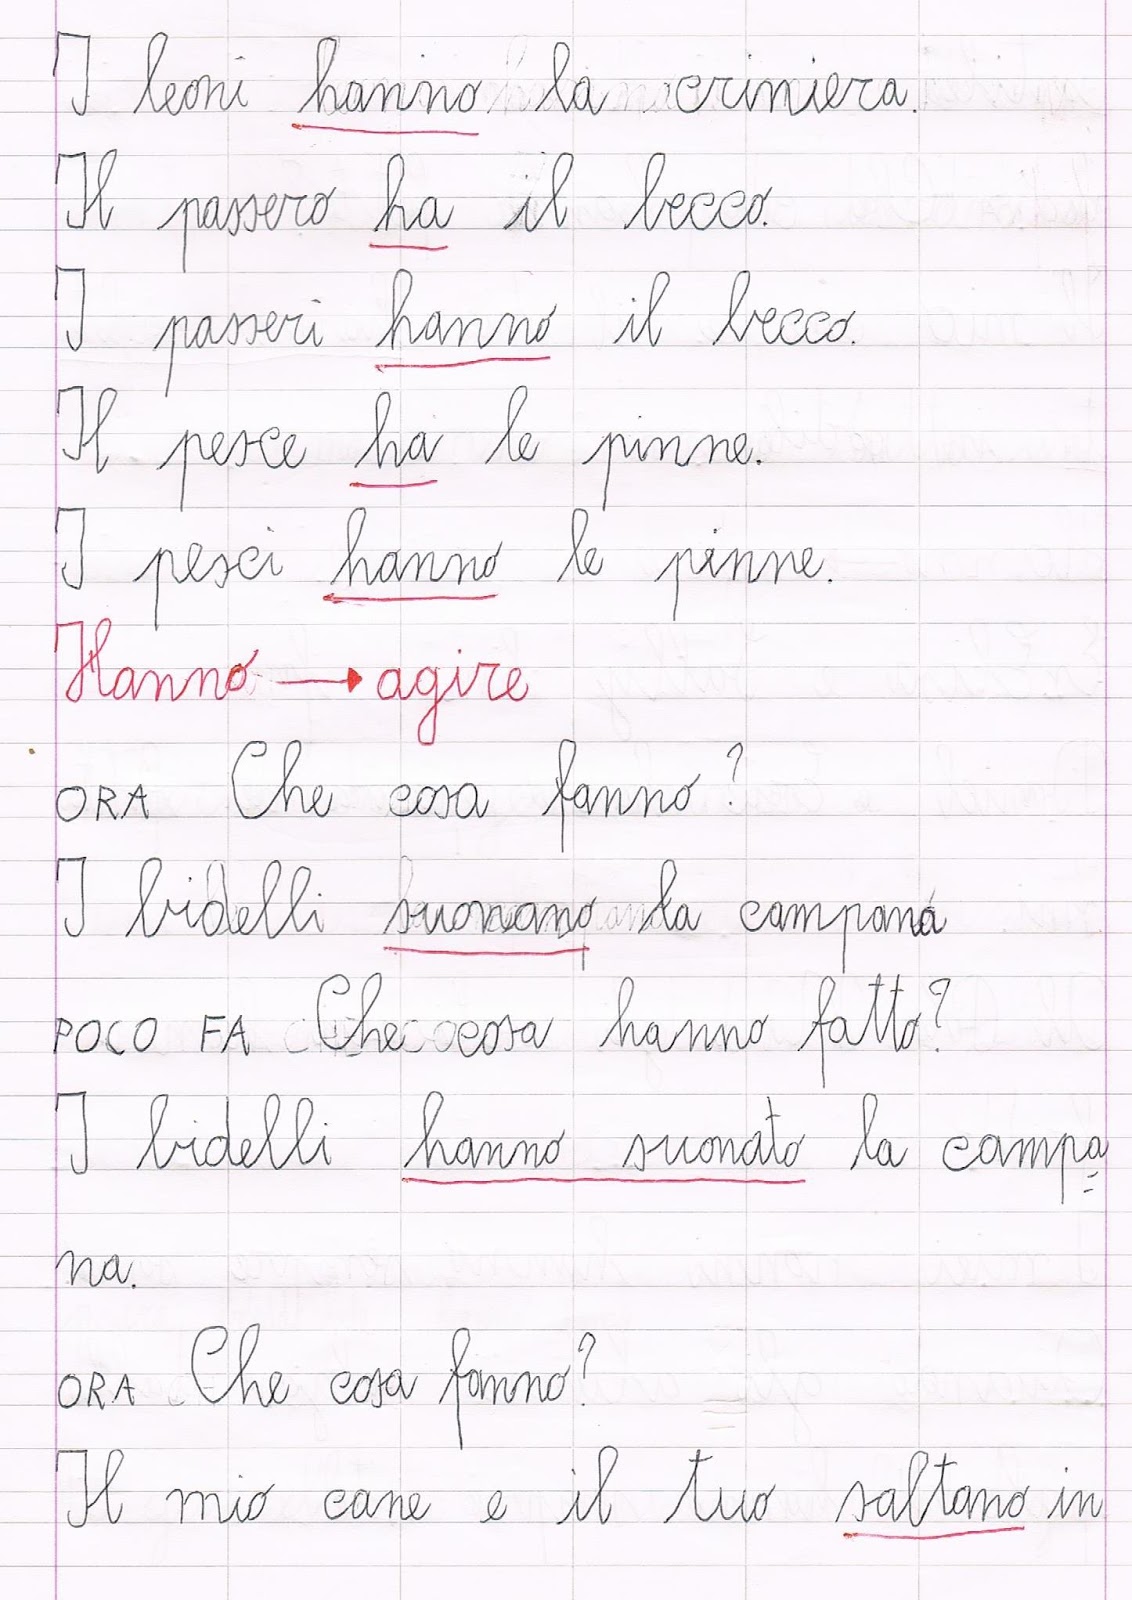 I leoni hanno la criniera.
Il passero ha il becco.
I passeri hanno il becco.
Il pesce ha le pinne.
I pesci hanno le pinne.
Hanno → agire
ORA Che cosa fanno?
I bidelli suonano la campana
POCO FA Che cosa hanno fatto?
I bidelli hanno suonato la campa=
na.
ORA Che cosa fanno?
Il mio cane e il tuo saltano in